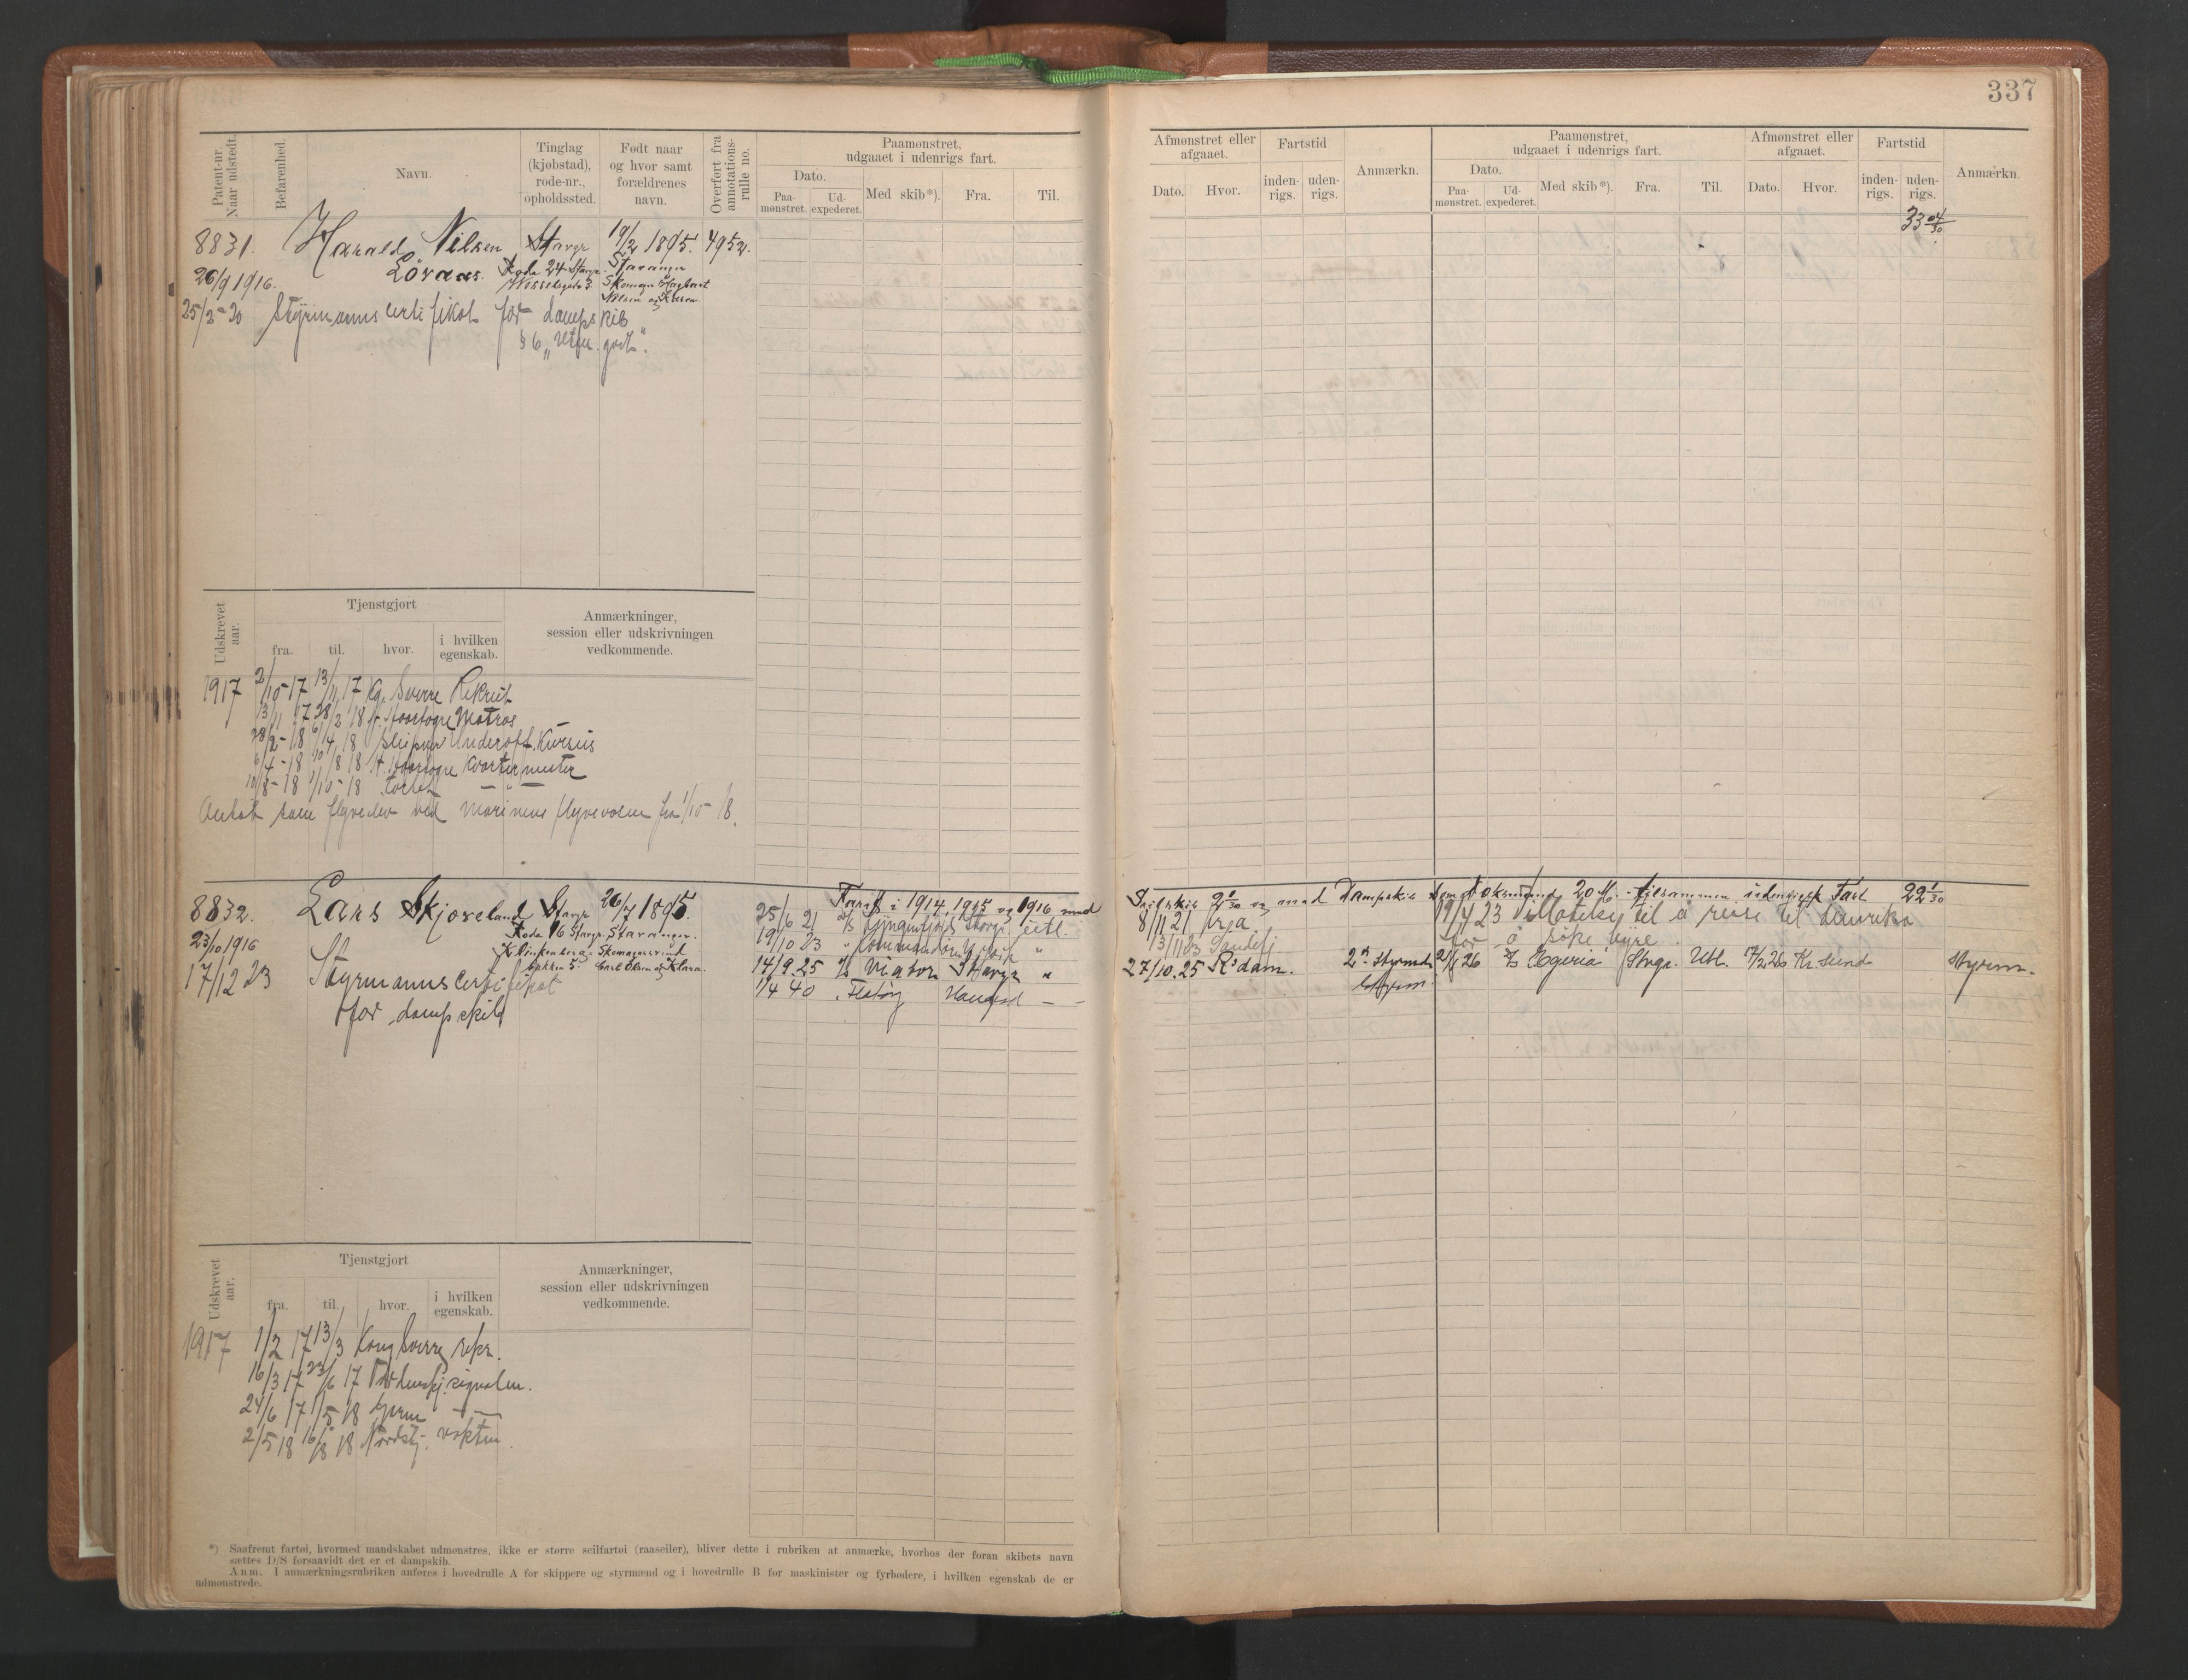 337
Patent-nr. Naar udstedt.
Befarenhed.
Navn.
Tinglag (kjøbstad), rode-nr., opholdssted.
Født naar og hvor samt forældrenes navn.
Overført fra annotations-rulle no.
Paamønstret, udgaaet i udenrigs fart.
Dato.
Paa-mønstret.
Ud-expederet.
Med skib*).
Fra.
Til.
Afmønstret eller afgaaet.
Dato.
Hvor.
Fartstid
inden-rigs.
uden-rigs.
Anmærkn.
Paamønstret, udgaaet i udenrigs fart.
Dato.
Paa-mønstret.
Ud-expederet.
Med skib*).
Fra.
Til.
Afmønstret eller afgaaet.
Dato.
Hvor.
Fartstid
inden-rigs.
uden-rigs.
Anmærkn.
33 04/30
8831. Harald Nilsen Stavgr 19/2 1895. 4952.
Löraas. Rode 24 Stavgr. Stavanger
26/9 1916. Skomager
Nilsen og
25/2-20 Styrmannscertifikat for dampskib
§ 6 godt".
Udskrevet aar.
Tjenstgjort
fra.
til.
hvor.
i hvilken egenskab.
Anmærkninger, session eller udskrivningen vedkommende.
1917 2/10-17 13/11 17 Kg. Sverre Rekrut
13/11 17 28/2 18 Matros
28/2-18 6/4 18 Sleipner Underoff. Kursus
6/4-18 10/8 18 Kvartermester
10/8-18 1/10-18
Antat som flyveelev ved marinens flyvevæsen fra 1/10-18.
8832. Lars Skjoreland Stavgr 26/7 1895.
Rode 16 Stavgr. Stavanger.
23/10 1916 Klinkenberg Skomagersvend
bakken 5. Carl Olsen og Klara.
17/12 23 Styrmannscertifikat
for dampskib
Faret i 1914, 1915 og 1916 med
Seilskib 2 og med Dampskib 20 M. tilsammen udenrigsk Fart 22 1/30
25/6 21 D/S Stavgr. utl. 8/11 21
19/10 23 " " 13/11 23 Sandefj
19/4 23 til å reise til Amerika
for å søke hyre.
14/9.25 D/S Viator Stavgr " 27/10.25 R'dam. 2n Styrmd
21/1 26 D/S Egeria Stvgr. Utl. 17/2 26 Kr.sund Styrm.
1/4 40 Haugsd — - Styrm.
Udskrevet aar.
Tjenstgjort
fra.
til.
hvor.
i hvilken egenskab.
Anmærkninger, session eller udskrivningen vedkommende.
1917 1/2 17 13/3 Kong Sverre rekr.
16/3 17 23/6 17 signalm.
24/6 17 1/5 18 — —
2/5 18 16/8 18 Nordstj.
*) Saafremt fartøi, hvormed mandskabet udmønstres, ikke er større seilfartøi (raaseiler), bliver dette i rubriken at anmærke, hvorhos der foran skibets navn
sættes D/S forsaavidt det er et dampskib.
Anm. I anmærkningsrubriken anføres i hovedrulle A for skippere og styrmænd og i hovedrulle B for maskinister og fyrbødere, i hvilken egenskab de er
udmønstrede.